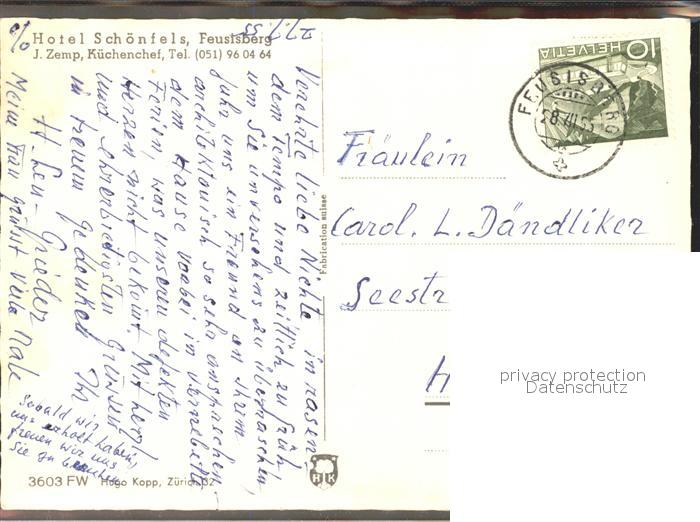 Hotel Schönfels, Feusisberg
J. Zemp, Küchenchef, Tel. (051) 96 04 64
Verehrte liebe Nichte in rasen-
dem Tempo und zeitlich zu früh
um Sie unversehens zu überraschen,
fuhr uns ein Freund an Ihrem
architektonisch so sehr ansprechen-
dem Hause vorbei in
Ferien, was unseren defekten
Herzen nicht bekomt. Mit herzl
und ehrerbietigsten Grüssen
in treuem Gedenken Ihr
H. Leu-Grieder
Meine Frau grüsst viele Male
Sobald wir
uns erholt haben,
freuen wir uns
Sie zu
3603 FW Hugo Kopp, Zürich 32
Fabrication suisse
HK
HELVETIA
10
FEUSISBERG
Fräulein
Carol. L. Dändliker
Seestr
H
privacy protection
Datenschutz